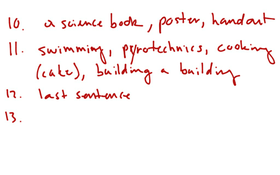 10. a science book, poster, handout
11. swimming, pyrotechnics, cooking
(cake), building a building
12. last sentence
13.